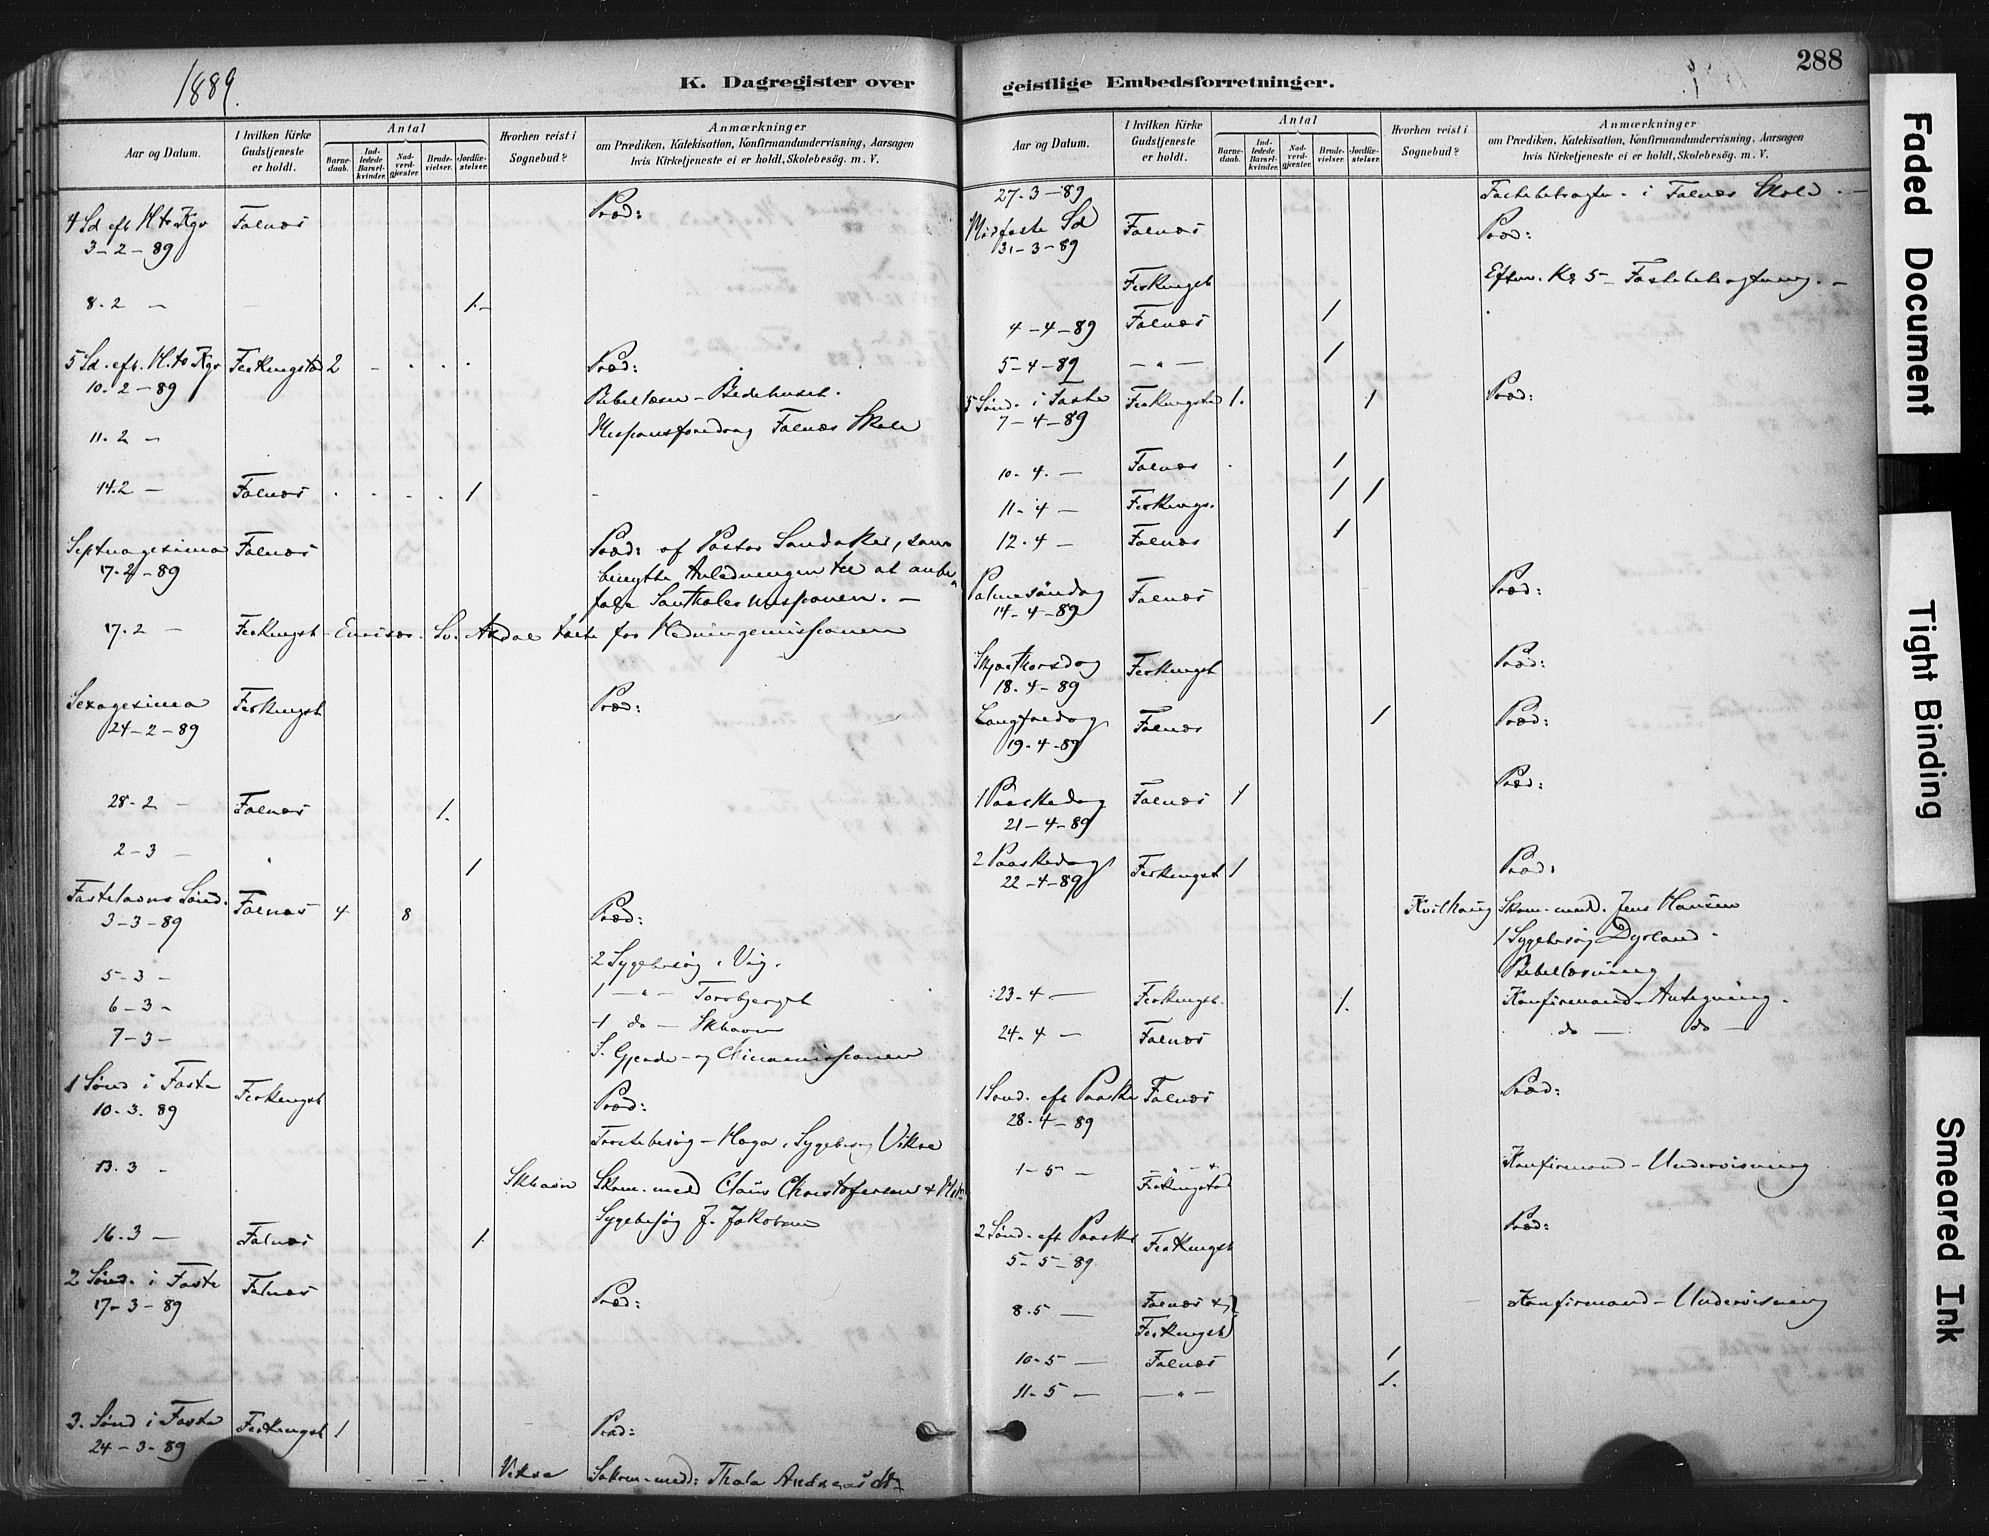 1889.
K. Dagregister over
Aar og Datum.
I hvilken Kirke Gudstjeneste er holdt.
Antal
Barnedaab.
Indledede Barselkvinder.
Nadverdgjæster.
Brudevielser.
Jordfæstelser.
Hvorhen reist i Sognebud?
Anmærkninger
om Prædiken, Katekisation, Konfirmandundervisning, Aarsagen
hvis Kirketjeneste ei er holdt, Skolebesög. m. V.
Præd:
4 Sd eft H. tr. Kgr Falnæs
3-2-89
8.2 — 1-
5 Sd. eft. H. tr Kgr Ferkingstad 2 Præd:
10.2-89
Bibellæsn - Bedehuset.
11.2 — Missionsforedrag Falnæs Skole
14.2 — Falnæs 1
Septuagesima Falnæs Præd: af Pastor Sandaker, som
17-2-89 benytte Anledningen til at anbe-
fale Santhalermissionen. —
17.2 — Ferkingst - Sv. talte for Hedningemissionen
Sexagesima Ferkingst Præd:
24-2-89
28-2 - Falnæs 1.
2-3 — " 1
Fastelavns Sønd. Falnæs 4 8 Præd:
3-3-89
5-3 — 2 Sygebesøg i Vig.
6-3 - 1 — " — Torsbjergst
7-3 - 1 do — Skhavn
og Kinamissionen
1 Sønd i Faste Ferkingst Præd:
10.3.89
Trøstebesøg - Haga, Sygebesøg Vikre
13.3 - Skhavn Skom. med Claus Christofersen &
Sygebesøg J. Jakobsen
16.3 — Falnæs 1
2 Sønd. i Faste Falnæs Præd:
17-3-89
3. Sønd i Faste Ferkingst 1 Præd:
24-3-89
Vikre med: Andreas
288
geistlige Embedsforretninger.
Aar og Datum.
I hvilken Kirke Gudstjeneste er holdt.
Antal
Barnedaab.
Indledede Barselkvinder.
Nadverdgjæster.
Brudevielser.
Jordfæstelser.
Hvorhen reist i Sognebud?
Anmærkninger
om Prædiken, Katekisation, Konfirmandundervisning, Aarsagen
hvis Kirketjeneste ei er holdt, Skolebesög. m. V.
27-3-89 Fastebetragtn. i Falnæs Skole. —
Midfaste Sd Falnæs Præd:
31-3-89
Ferkingst Efterm. Kl 5 - Fastebetragtning. —
4-4-89 Falnæs 1
5-4-89 — " — 1
5 Sønd. i Faste Ferkingstad 1. 1 Præd:
7-4-89
10-4. — Falnæs 1
11-4 — Ferkings. 1 1
12.4 — Falnæs 1
Palmesøndag Falnæs Præd:
14-4-89
Skjærthorsdag Ferkingst Præd:
18.4-89
Langfredag Falnæs 1 Præd:
19.4-89
1 Paaskedag Falnæs 1 Præd:
21-4-89
2 Paaskedag Ferkingst 1 Præd:
22-4-89
Kvilhaug Skom. med. Jens Hansen
1 Sygebesøg Dyrland -
Bibellæsning
23-4 — Ferkingst. 1. Konfirmand-Antegning.
24.4 — Falnæs do — do —
1 Sønd. eft Paaske Falnæs Præd:
28-4-89
1-5 — — " — Konfirmand-Undervisning
Ferkingstad
2 Sønd. eft Paaske Ferkingst Præd:
5-5-89
8.5 — Falnæs & Konfirmand-Undervisning
Ferkingst
10-5 — Falnæs 1
11-5 — — " — 1.
Faded Document
Tight Binding
Smeared Ink